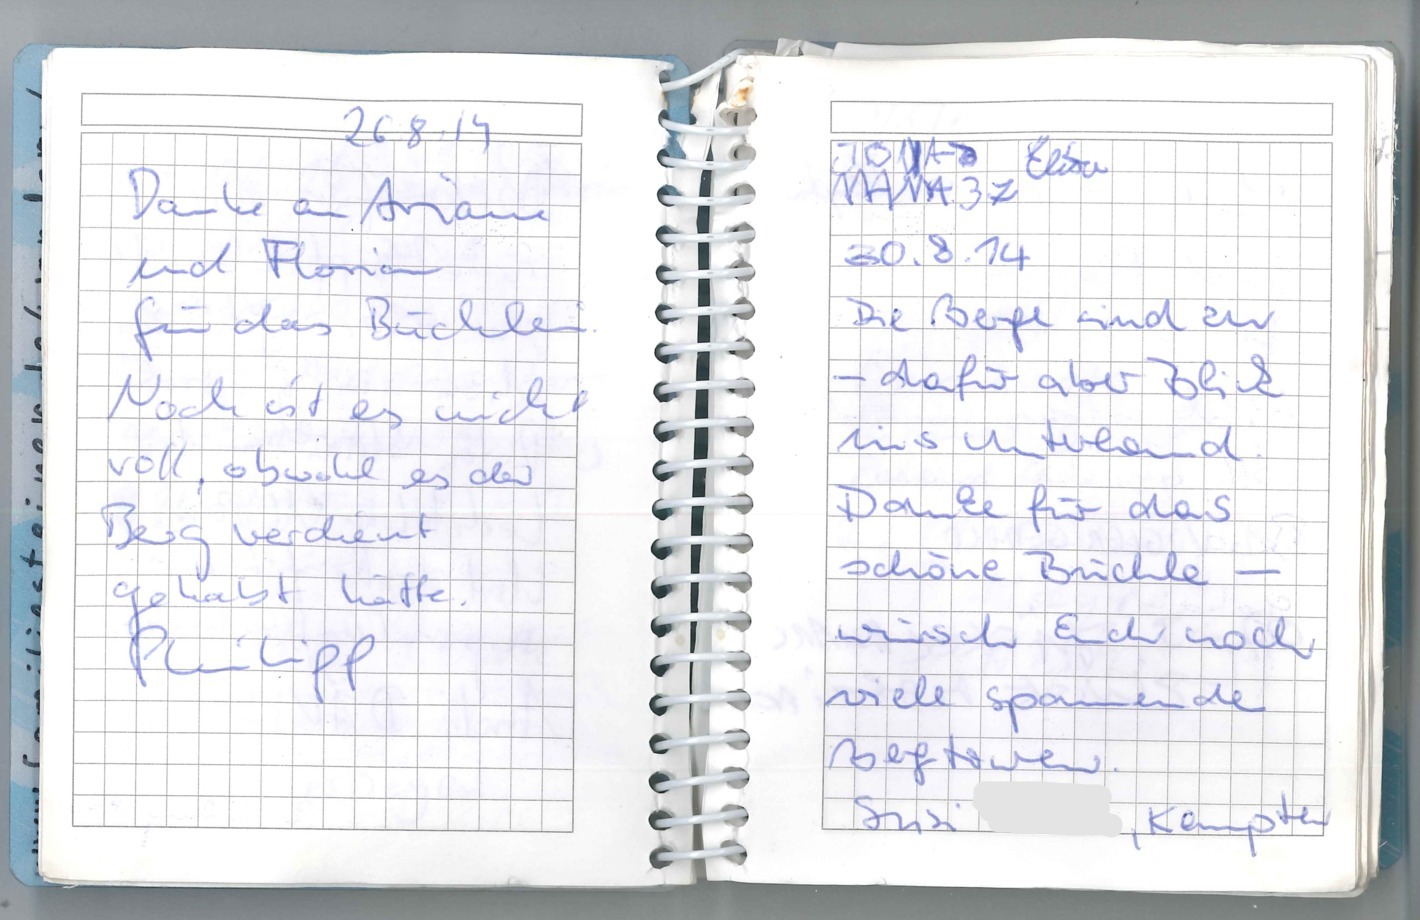 26.8.14
Danke an Ariane
und Florian
für das Büchlein.
Noch ist es nicht
voll, obwohl es der
Berg verdient
gehabt hätte.
Philipp
JONAS
30.8.14
Die Berge sind zu
– dafür aber Blick
ins Unterland.
Danke für das
schöne Büchle –
wünsch Euch noch
viele spannende
Bergtouren.
Susi , Kempten